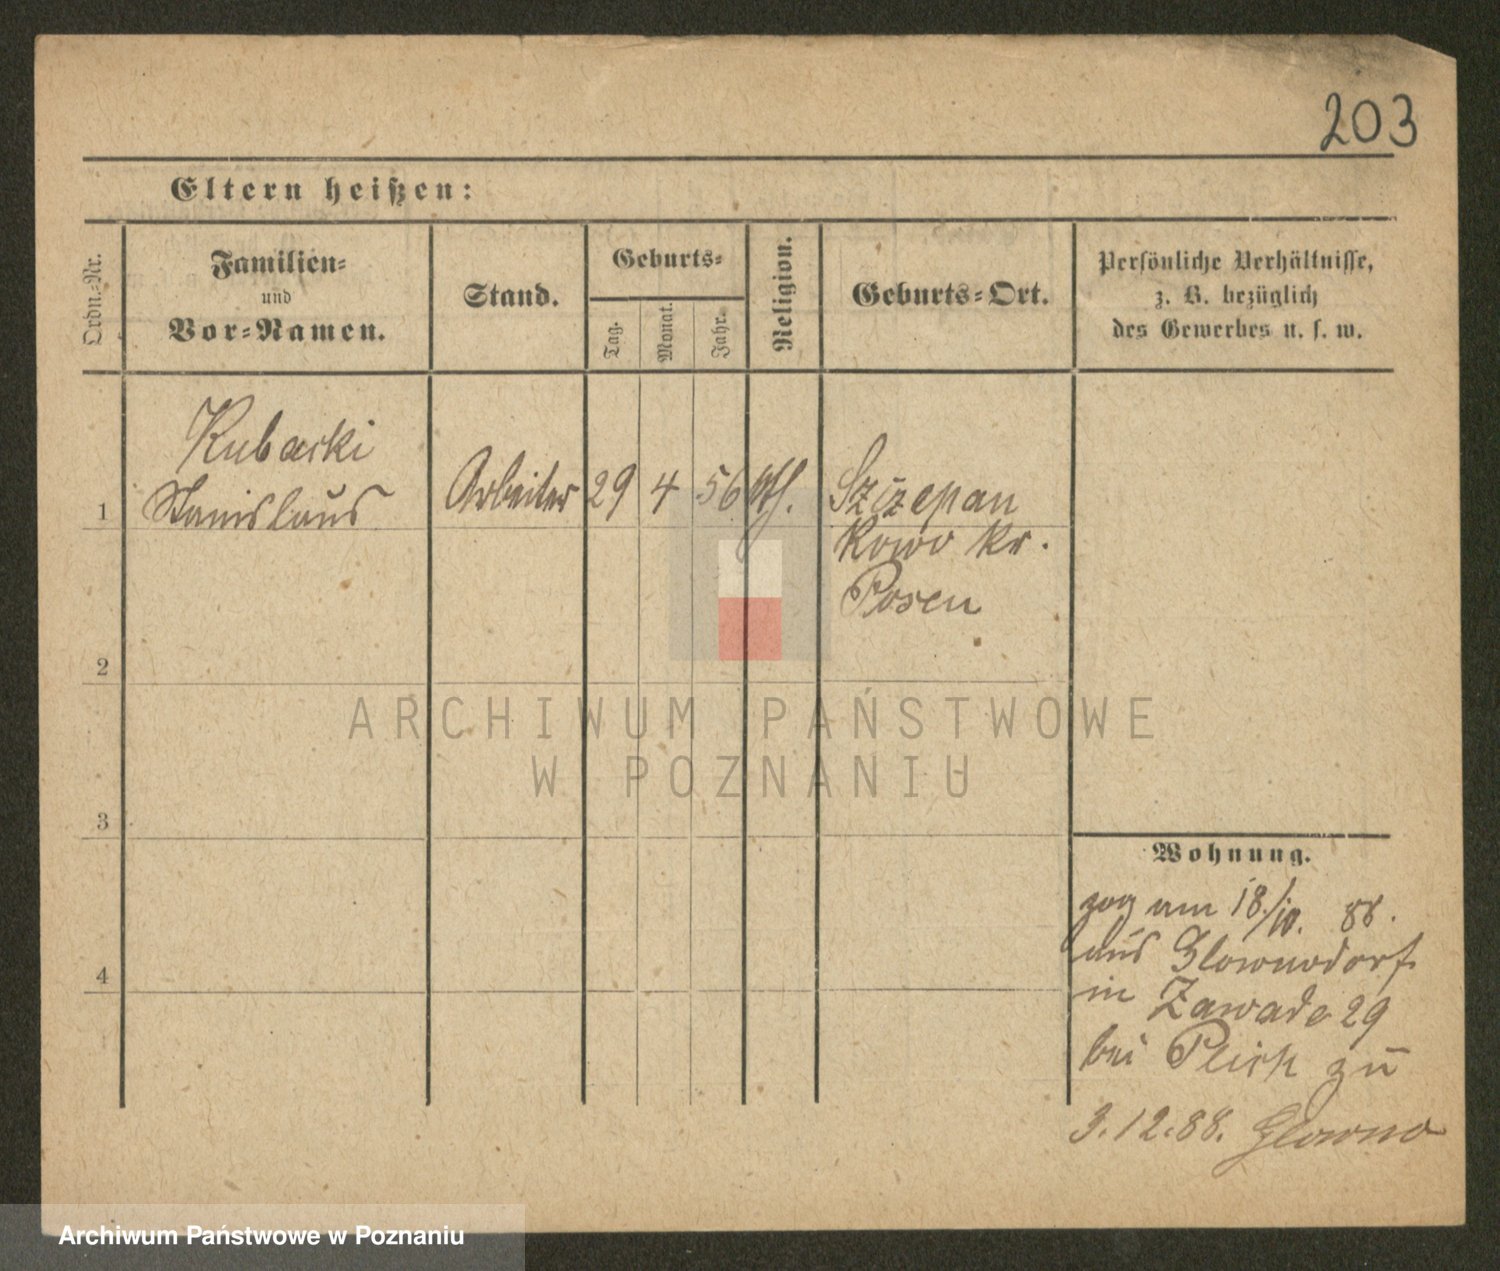 203
Eltern heißen:
Ordn.-Nr.
Familien-
und
Vor-Namen.
Stand.
Geburts-
Tag.
Monat.
Jahr.
Religion.
Geburts-Ort.
Persönliche Verhältnisse,
z. B. bezüglich
des Gewerbes u. s. w.
1
Kubacki
Stanislaus
Arbeiter
29
4
56
kth.
Szczepan
kowo Kr.
Posen
2
3
4
Wohnung.
zog am 18/10. 88.
aus Glownodorf
in Zawade 29
bei zu
3.12.88. Glowno
ARCHIWUM PAŃSTWOWE
W POZNANIU
Archiwum Państwowe w Poznaniu